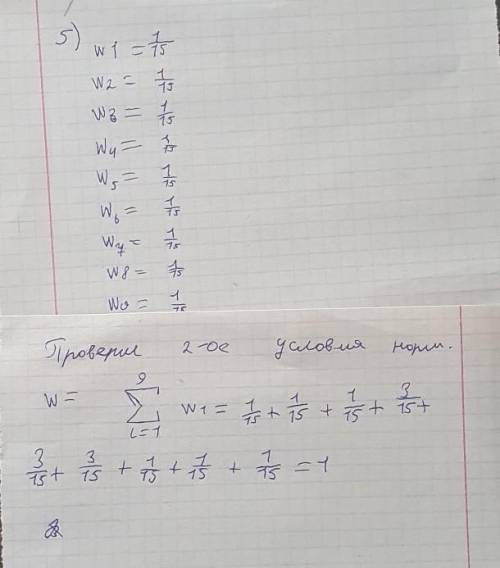 5) w1 = 1/15
w2 = 1/15
w3 = 1/15
w4 = 1/15
w5 = 1/15
w6 = 1/15
w7 = 1/15
w8 = 1/15
w9 = 1/15
Проверим 2-ое условия норм.
w = 9 ∑ i=1 w1 = 1/15 + 1/15 + 1/15 + 3/15 +
3/15 + 3/15 + 1/15 + 1/15 + 1/15 = 1